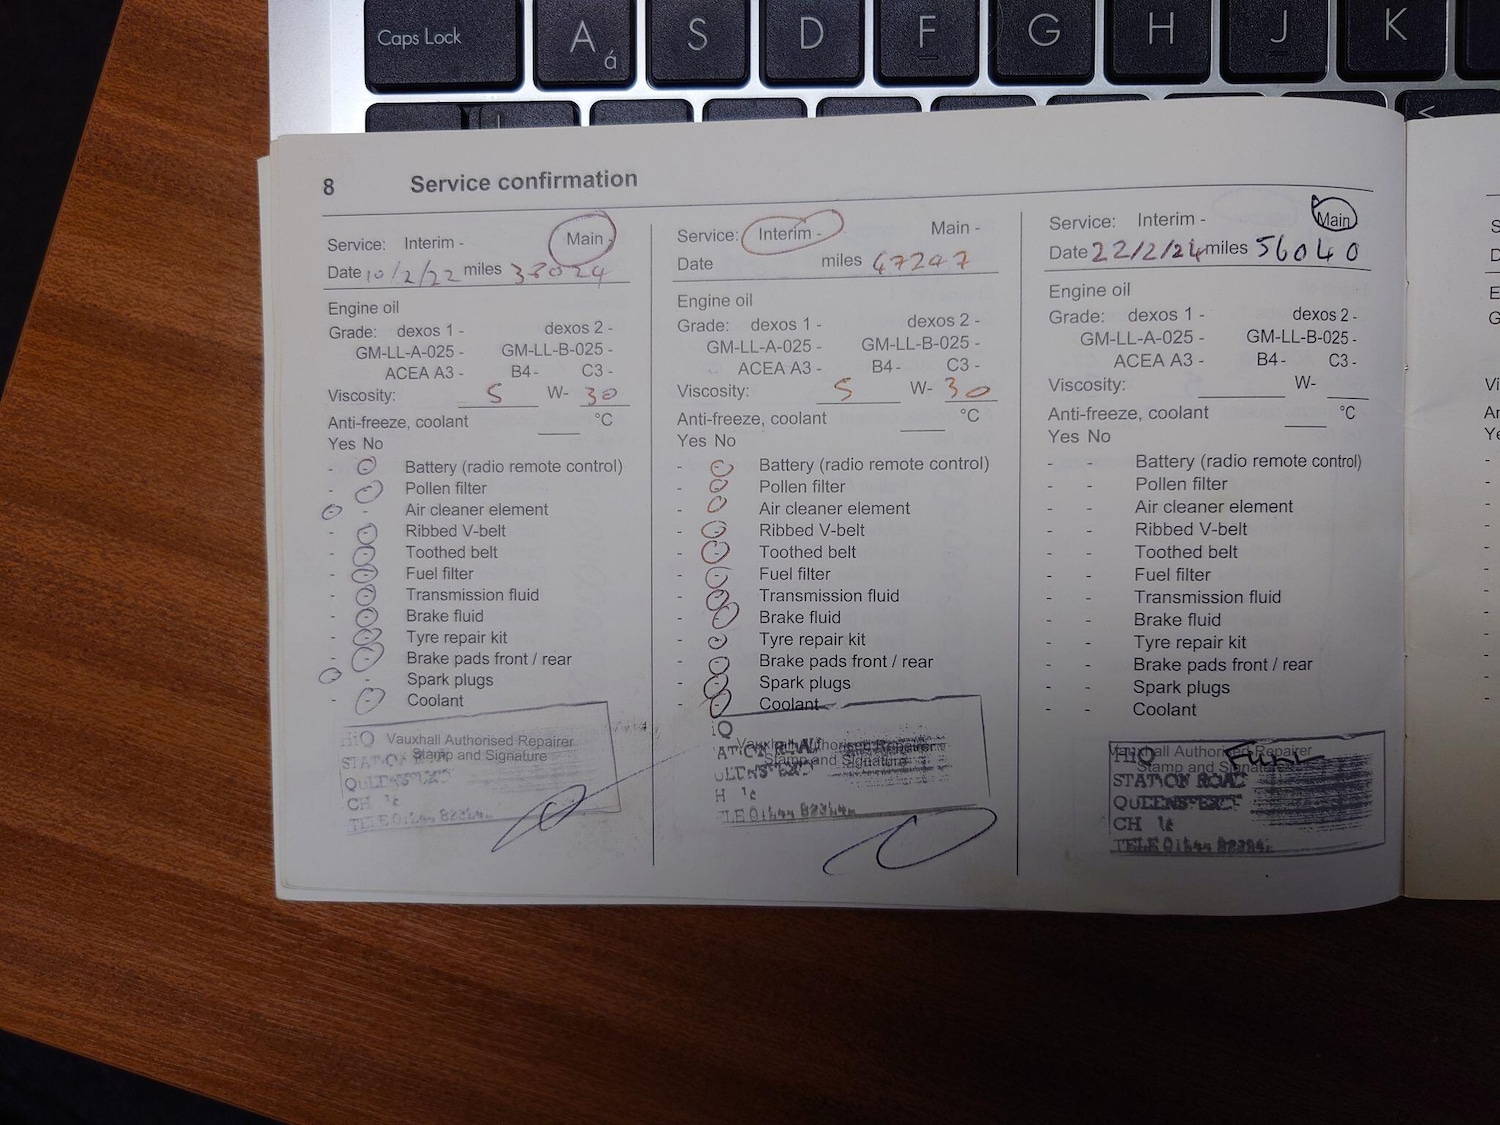 Caps Lock A á S D F G H J K
<
8 Service confirmation
Service: Interim - Main -
Date 10/2/22 miles 38024
Engine oil
Grade: dexos 1 - dexos 2 -
GM-LL-A-025 - GM-LL-B-025 -
ACEA A3 - B4 - C3 -
Viscosity: 5 W- 30
Anti-freeze, coolant °C
Yes No
- - Battery (radio remote control)
- - Pollen filter
- - Air cleaner element
- - Ribbed V-belt
- - Toothed belt
- - Fuel filter
- - Transmission fluid
- - Brake fluid
- - Tyre repair kit
- - Brake pads front / rear
- - Spark plugs
- - Coolant
Vauxhall Authorised Repairer
Stamp and Signature
Service: Interim - Main -
Date miles 47247
Engine oil
Grade: dexos 1 - dexos 2 -
GM-LL-A-025 - GM-LL-B-025 -
ACEA A3 - B4 - C3 -
Viscosity: 5 W- 30
Anti-freeze, coolant °C
Yes No
- - Battery (radio remote control)
- - Pollen filter
- - Air cleaner element
- - Ribbed V-belt
- - Toothed belt
- - Fuel filter
- - Transmission fluid
- - Brake fluid
- - Tyre repair kit
- - Brake pads front / rear
- - Spark plugs
- - Coolant
Vauxhall Authorised Repairer
Stamp and Signature
Service: Interim - Main
Date 22/2/24 miles 56040
Engine oil
Grade: dexos 1 - dexos 2 -
GM-LL-A-025 - GM-LL-B-025 -
ACEA A3 - B4 - C3 -
Viscosity: W-
Anti-freeze, coolant °C
Yes No
- - Battery (radio remote control)
- - Pollen filter
- - Air cleaner element
- - Ribbed V-belt
- - Toothed belt
- - Fuel filter
- - Transmission fluid
- - Brake fluid
- - Tyre repair kit
- - Brake pads front / rear
- - Spark plugs
- - Coolant
Vauxhall Authorised Repairer
Stamp and Signature
HiQ FULL
STATION ROAD
CH